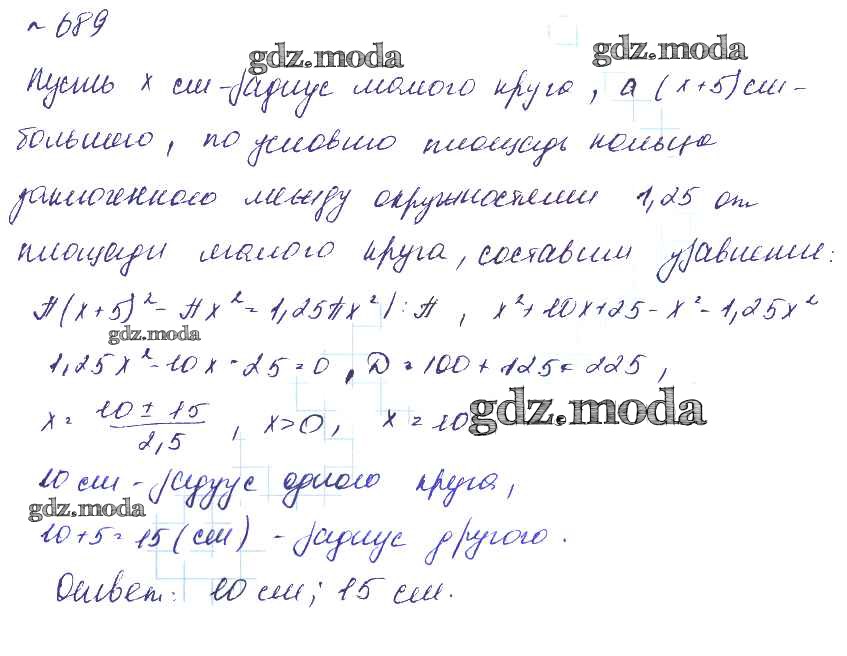 № 689
gdz.moda gdz.moda
Пусть x см - радиус малого круга, а (x+5) см -
большого, по условию площадь кольца
заключенного между окружностями 1,25 от
площади малого круга, составим уравнение:
π(x+5)² - πx² = 1,25πx² | : π , x² + 10x + 25 - x² - 1,25x²
gdz.moda
1,25x² - 10x - 25 = 0 , D = 100 + 125 = 225 ,
x = (10 ± 15)/2,5 , x > 0 , x = 10 gdz.moda
10 см - радиус одного круга,
gdz.moda
10 + 5 = 15 (см) - радиус другого.
Ответ: 10 см; 15 см.